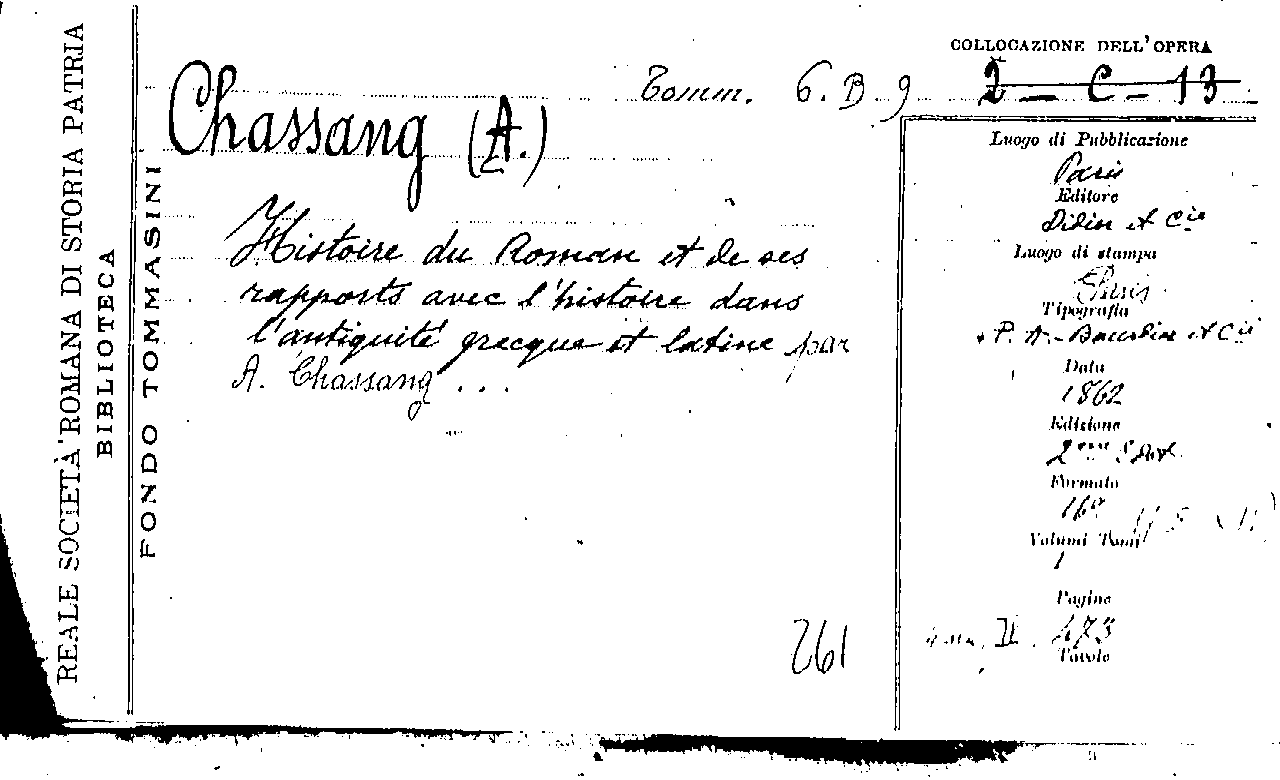 REALE SOCIETÀ ROMANA DI STORIA PATRIA
BIBLIOTECA
FONDO TOMMASINI
COLLOCAZIONE DELL'OPERA
Tomm. 6. B. 9
2 - C - 13
Chassang (A.)
Histoire du Roman et de ses
rapports avec l'histoire dans
l'antiquité grecque et latine par
A. Chassang ...
Luogo di Pubblicazione
Paris
Editore
Didier et Cie
Luogo di stampa
Paris
Tipografia
P. A. Bourdier et Cie
Data
1862
Edizione
2me
Formato
16°
Volumi Tomi
1
Pagine
II. 473
Tavole
261